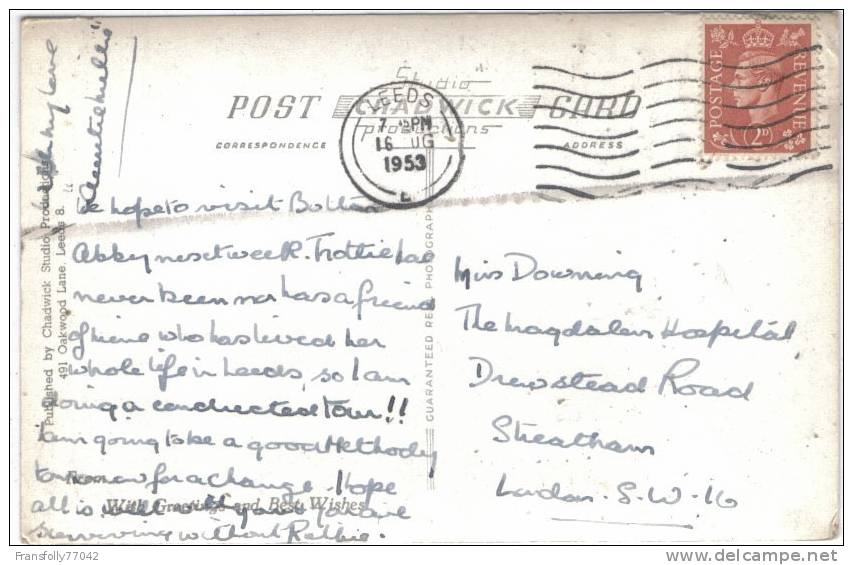 Studio
POST CHADWICK CARD
productions
CORRESPONDENCE
ADDRESS
LEEDS
PM
16 UG
1953
POSTAGE
REVENUE
2D
We hope to visit Bolton
Abbey next week. Trottie has
never been nor has a friend
of mine who has lived her
whole life in Leeds, so I am
doing a conducted tour!!
I am going to be a good Methody
tomorrow for a change. Hope
all is well with you & you are
surviving without
my love
Published by Chadwick Studio Productions
491 Oakwood Lane, Leeds 8.
GUARANTEED REAL PHOTOGRAPH
From
With Greetings and Best Wishes
Miss Downing
The Magdalen Hospital
Drewstead Road
Streatham
London. S.W.16
Fransfolly77042